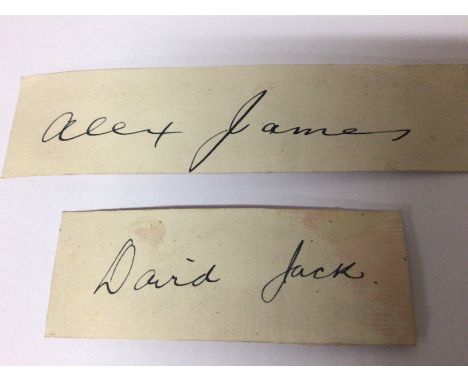 Alex James
David Jack.